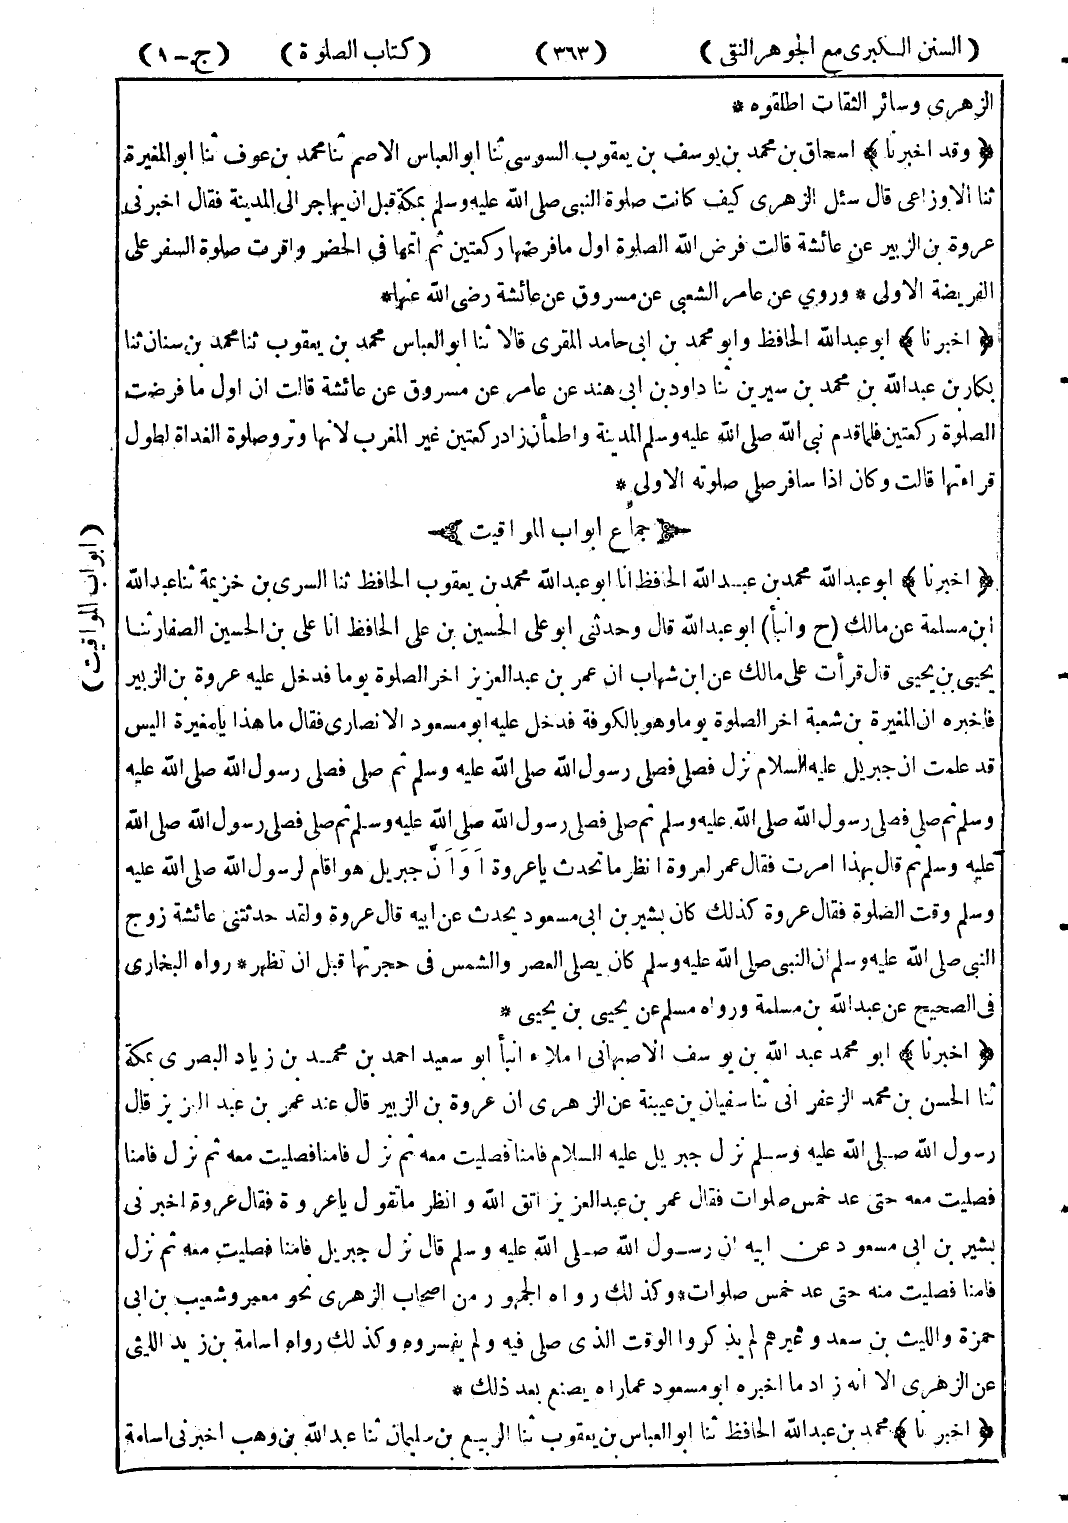 (السنن الكبرى مع الجوهر النقى) (٣٦٣) (كتاب الصلوة) (ج - ١)
الزهرى وسائر الثقات اطلقوه *
﴿ وقد اخبرنا ﴾ اسحاق بن محمد بن يوسف بن يعقوب السوسى ثنا ابو العباس الاصم ثنا محمد بن عوف ثنا ابو المغيرة
ثنا الاوزاعى قال سئل الزهرى كيف كانت صلوة النبى صلى الله عليه وسلم بمكة قبل ان يهاجر الى المدينة فقال اخبرنى
عروة بن الزبير عن عائشة قالت فرض الله الصلوة اول ما فرضها ركعتين ثم اتمها فى الحضر واقرت صلوة السفر على
الفريضة الاولى * وروي عن عامر الشعبي عن مسروق عن عائشة رضى الله عنها *
﴿ اخبرنا ﴾ ابو عبد الله الحافظ وابو محمد بن ابى حامد المقرى قالا ثنا ابو العباس محمد بن يعقوب ثنا محمد بن سنان ثنا
بكار بن عبد الله بن محمد بن سيرين ثنا داود بن ابى هند عن عامر عن مسروق عن عائشة قالت ان اول ما فرضت
الصلوة ركعتين فلما قدم نبى الله صلى الله عليه وسلم المدينة واطمأن زاد ركعتين غير المغرب لانها وتر وصلوة الغداة لطول
قراءتها قالت وكان اذا سافر صلى صلوته الاولى *
جماع ابواب المواقيت
(ابواب المواقيت)
﴿ اخبرنا ﴾ ابو عبد الله محمد بن عبد الله الحافظ انا ابو عبد الله محمد بن يعقوب الحافظ ثنا السرى بن خزيمة ثنا عبد الله
ابن مسلمة عن مالك (ح وانبأ) ابو عبد الله قال وحدثنى ابو على الحسين بن على الحافظ انا على بن الحسين الصفار ثنا
يحيى بن يحيى قال قرأت على مالك عن ابن شهاب ان عمر بن عبد العزيز اخر الصلوة يوما فدخل عليه عروة بن الزبير
فاخبره ان المغيرة بن شعبة اخر الصلوة يوما وهو بالكوفة فدخل عليه ابو مسعود الانصارى فقال ما هذا يا مغيرة اليس
قد علمت ان جبريل عليه السلام نزل فصلى فصلى رسول الله صلى الله عليه وسلم ثم صلى فصلى رسول الله صلى الله عليه
وسلم ثم صلى فصلى رسول الله صلى الله عليه وسلم ثم صلى فصلى رسول الله صلى الله عليه وسلم ثم صلى فصلى رسول الله صلى الله
عليه وسلم ثم قال بهذا امرت فقال عمر لعروة انظر ما تحدث يا عروة اَوَ اَنَّ جبريل هو اقام لرسول الله صلى الله عليه
وسلم وقت الصلوة فقال عروة كذلك كان بشير بن ابى مسعود يحدث عن ابيه قال عروة ولقد حدثتنى عائشة زوج
النبى صلى الله عليه وسلم ان النبى صلى الله عليه وسلم كان يصلى العصر والشمس فى حجرتها قبل ان تظهر * رواه البخارى
فى الصحيح عن عبد الله بن مسلمة ورواه مسلم عن يحيى بن يحيى *
﴿ اخبرنا ﴾ ابو محمد عبد الله بن يوسف الاصبهانى املاء انبأ ابو سعيد احمد بن محمد بن زياد البصرى بمكة
ثنا الحسن بن محمد الزعفرانى ثنا سفيان بن عيينة عن الزهرى ان عروة بن الزبير قال عند عمر بن عبد العزيز قال
رسول الله صلى الله عليه وسلم نزل جبريل عليه السلام فامنا فصليت معه ثم نزل فامنا فصليت معه ثم نزل فامنا
فصليت معه حتى عد خمس صلوات فقال عمر بن عبد العزيز اتق الله وانظر ما تقول يا عروة فقال عروة اخبرنى
بشير بن ابى مسعود عن ابيه ان رسول الله صلى الله عليه وسلم قال نزل جبريل فامنا فصليت معه ثم نزل
فامنا فصليت منه حتى عد خمس صلوات * وكذلك رواه الجمهور من اصحاب الزهرى نحو معمر وشعيب بن ابى
حمزة والليث بن سعد وغيرهم لم يذكروا الوقت الذى صلى فيه ولم يفسروه وكذلك رواه اسامة بن زيد الليثى
عن الزهرى الا انه زاد ما اخبره ابو مسعود عما راه يصنع بعد ذلك *
﴿ اخبرنا ﴾ محمد بن عبد الله الحافظ ثنا ابو العباس بن يعقوب ثنا الربيع بن سليمان ثنا عبد الله بن وهب اخبرنى اسامة